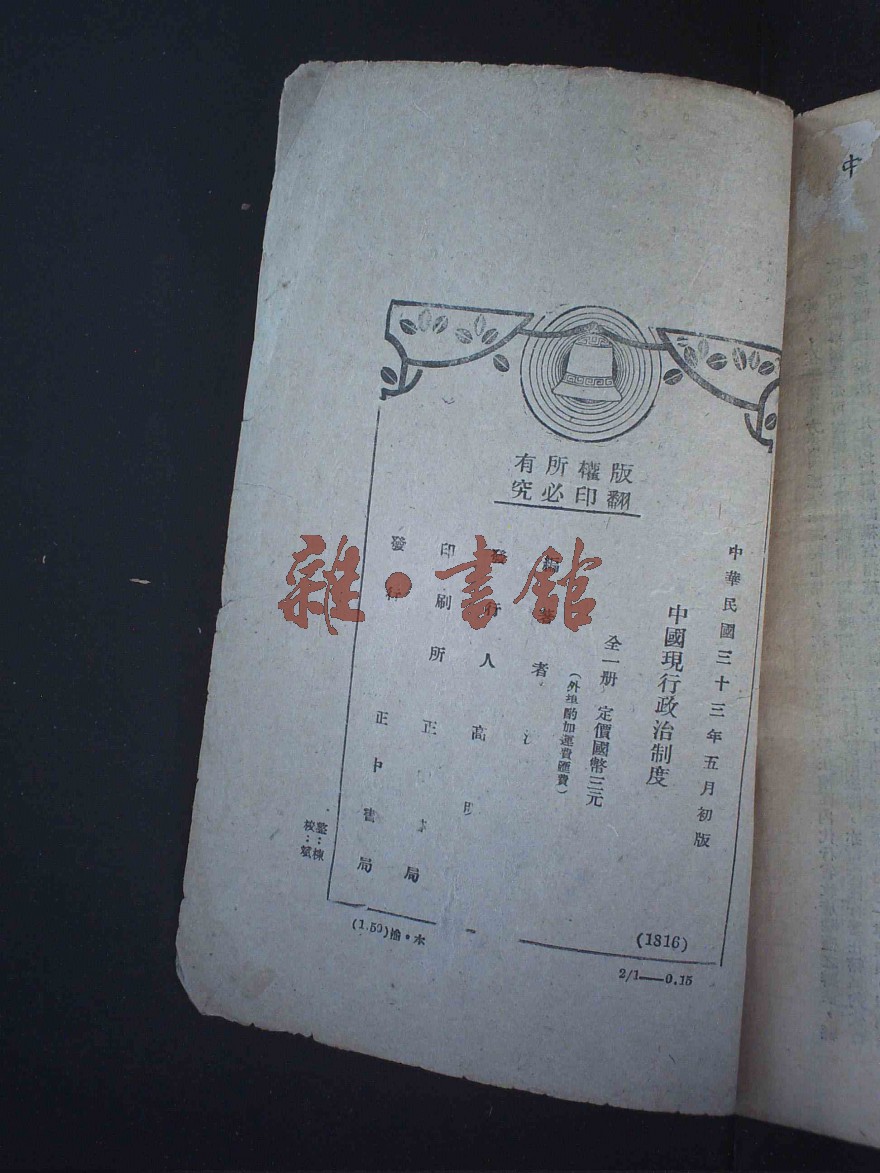 版權所有
翻印必究
中華民國三十三年五月初版
中國現行政治制度
全一册 定價國幣三元
(外埠酌加運費匯費)
編著者
發行人 高
印刷所 正 局
發行 正中書局
整:棟
校:斌
(1816)
2/1——0.15
(1.50)渝·木
雜·書館
中